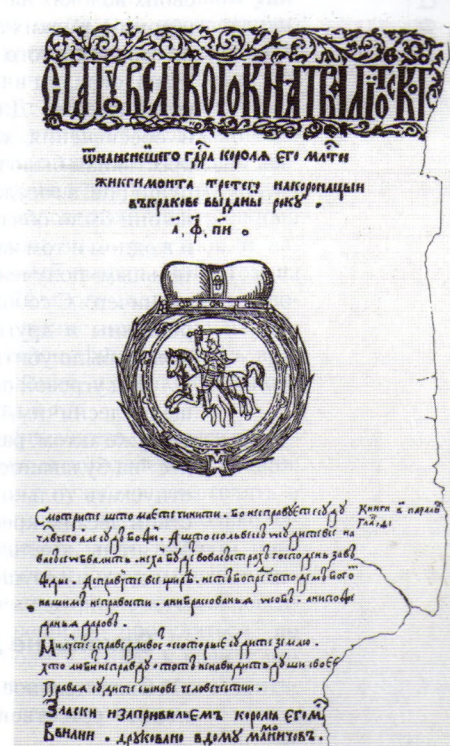 СТАТꙋ ВЕЛИКОГО КНѦТВА ЛИТОВСКГО
Ѿ наꙗснейшего гд҃рѧ королѧ его мл҃ти
жикгимонта третего на коронацыи
въ кракове выданы року .
҂а҃ . ф҃ . пи҃ .
Смотрите што маете чинити . бо не справуете суду
Книги в҃ парали
глава
чл҃вчего але суд божи . А што колвекъ усудите все на
васъ се обвалитъ . нехай буде во васъ страх господень завъ
жды . А справуйте все щире . несть бо при господе бозе
нашимъ неправости . ани бракованья особъ . ани поже
данья даровъ .
Милуйте справедливость которые судите землю .
Хто люби неправду . тотъ ненавидитъ души своеѣ
Правая судите сынове человечестии .
З ласки и за привильемъ короля его м
В вилни . друковано в дому мамоничовъ .